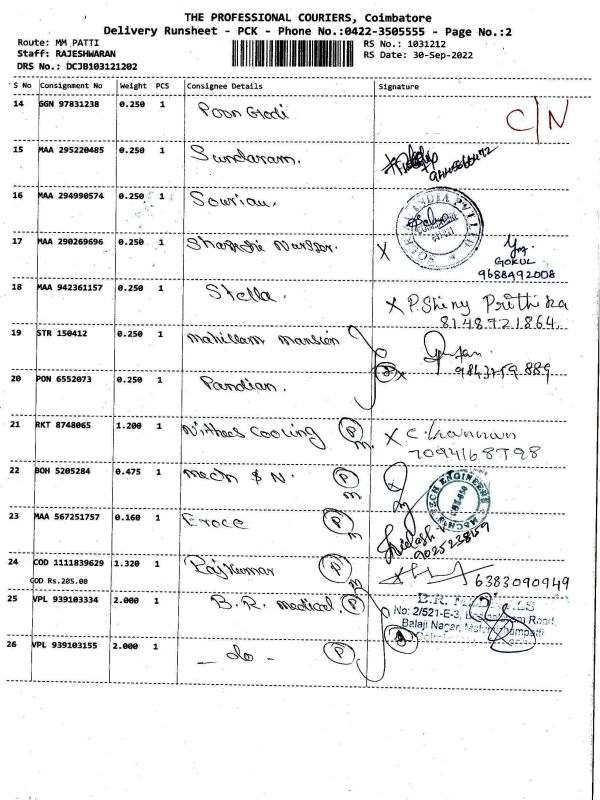 THE PROFESSIONAL COURIERS, Coimbatore
Delivery Runsheet - PCK - Phone No.:0422-3505555 - Page No.:2
Route: MM PATTI
RS No.: 1031212
Staff: RAJESHWARAN
RS Date: 30-Sep-2022
DRS No.: DCJB103121202
S No Consignment No Weight PCS Consignee Details Signature
14 GGN 97831238 0.250 1 Poon Godi C/N
15 MAA 295220485 0.250 1 Sundaram.
16 MAA 294990574 0.250 1 Sourian.
17 MAA 290269696 0.250 1 X
GOKUL
9688492008
18 MAA 942361157 0.250 1 Stella. X P. Shiny Prithika
8148721864
19 STR 150412 0.250 1 mahillam mansion
9843759889
20 PON 6552073 0.250 1 Pandian.
21 RKT 8748065 1.200 1 Cooling P X
7094168798
22 BOH 5205284 0.475 1 mech & N. P
23 MAA 567251757 0.160 1 P
24 COD 1111839629 1.320 1 Rajkumar P 6383090949
COD Rs.205.00
25 VPL 939103334 2.000 1 B.R. medical P
No: 2/521-E-3,
Balaji Nagar,
26 VPL 939103155 2.000 1 - do - P